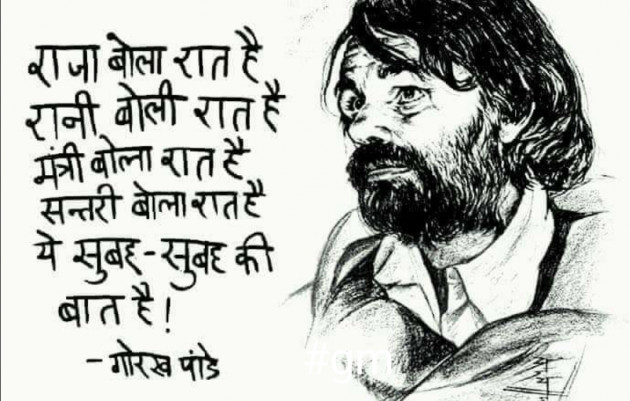 राजा बोला रात है
रानी बोली रात है
मंत्री बोला रात है
सन्तरी बोला रात है
ये सुबह-सुबह की
बात है!
- गोरख पांडे
#gm